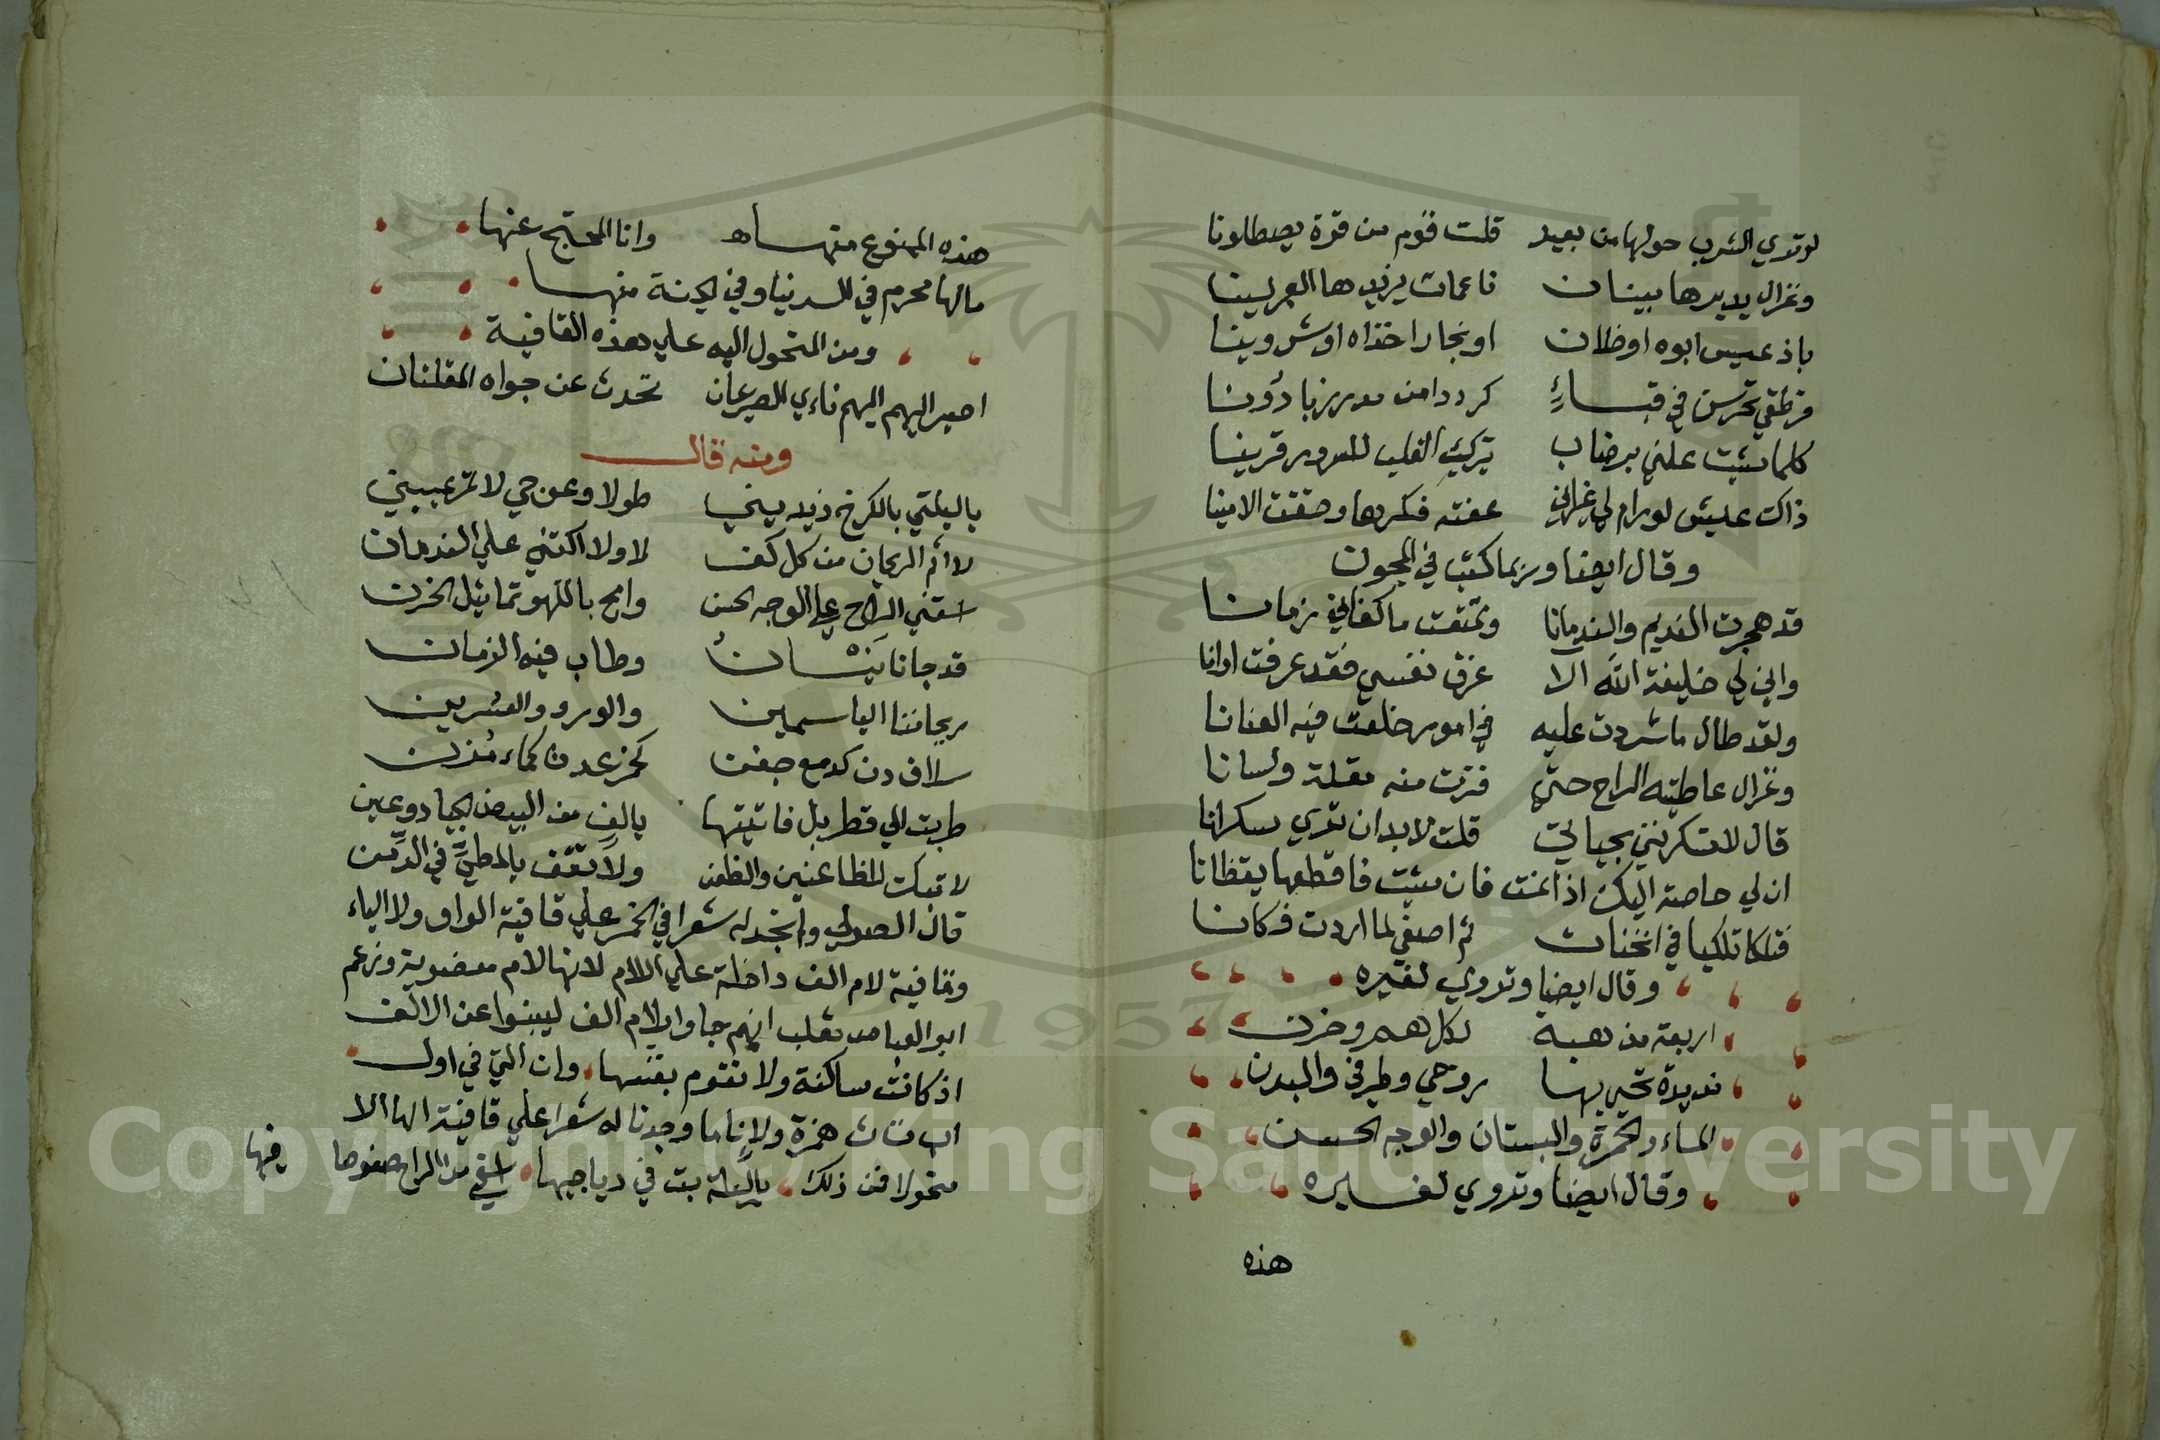 لو تري الشرب حولها من بعيد قلت قوم من قرة يصطلونا
وغزال يديرها ببنان ناعمات يزيدها الغر لينا
كلما شيت علني برضاب يترك القلب للسرور قرينا
ذاك عيش لو دام لي غير اني عفته مكرها وخفت الامينا
وقال ايضا وربما كتب في المجون
قد هجرت النديم والندمانا وتمتعت ما كفاني زمانا
واني لي خليفة الله الا عزف نفسي فقد عرفت اوانا
ولقد طال ما شردت عليه في امور خلعت فيه العنانا
وغزال عاطيته الراح حتي فترت منه مقلة ولسانا
قال لا تسكرنني بحياتي قلت لا بد ان تري سكرانا
ان لي حاجة اليك اذا نمت فان شيت فاقضها يقظانا
فتلكا تلكيا في انخناث ثم اصغي لما اردت فكانا
وقال ايضا وتروي لغيره
اربعة مذهبة لكل هم وحزن
تحيي بها روحي وطرفي والبدن
الماء والخمرة والبستان والوجه الحسن
وقال ايضا وتروي لغيره
هذه
هذه الممنوع منها وانا المحتج عنها
مالها تحرم في الدنيا وفي الجنة منها
ومن المنحول اليه علي هذه القافية
تحدث عن جواه المقلتان
ومنه قال
ياليلتي بالكرخ زيديني طولا وعن حي لا تريبيني
لا اشم الريحان من كل كف لا ولا اتكئي علي الندمان
اسقني الراح علي الوجه الحسن وامح باللهو تماثيل الحزن
قد جانا نيسان وطاب فيه الزمان
ريحاننا الياسمين والورد والنسرين
سلاف دن كدمع جفن كخمر عدن كماء مزن
طربت الي قطربل فاتيتها بالف من البيض الجياد وعين
لا تبك للظاعنين والظعن ولا تقف بالمطي في الدمن
قال الصولي ولم نجد له شعرا في الخمر علي قافية الواو ولا الياء
وقافية لام الف داخلة علي اللام لانها لام منصوبة وزعم
ابو العباس ثعلب انهم جاوا بلام الف لينبوا عن الالف
اذ كانت ساكنة ولا تقوم بنفسها وان التي في اول
ا ب ت ث همزة ولانا ما وجدنا له شعرا علي قافية الها الا
منحولا فمن ذلك يا ليلة بت في دياجيها اسقي من الراح صفو ما
فيها